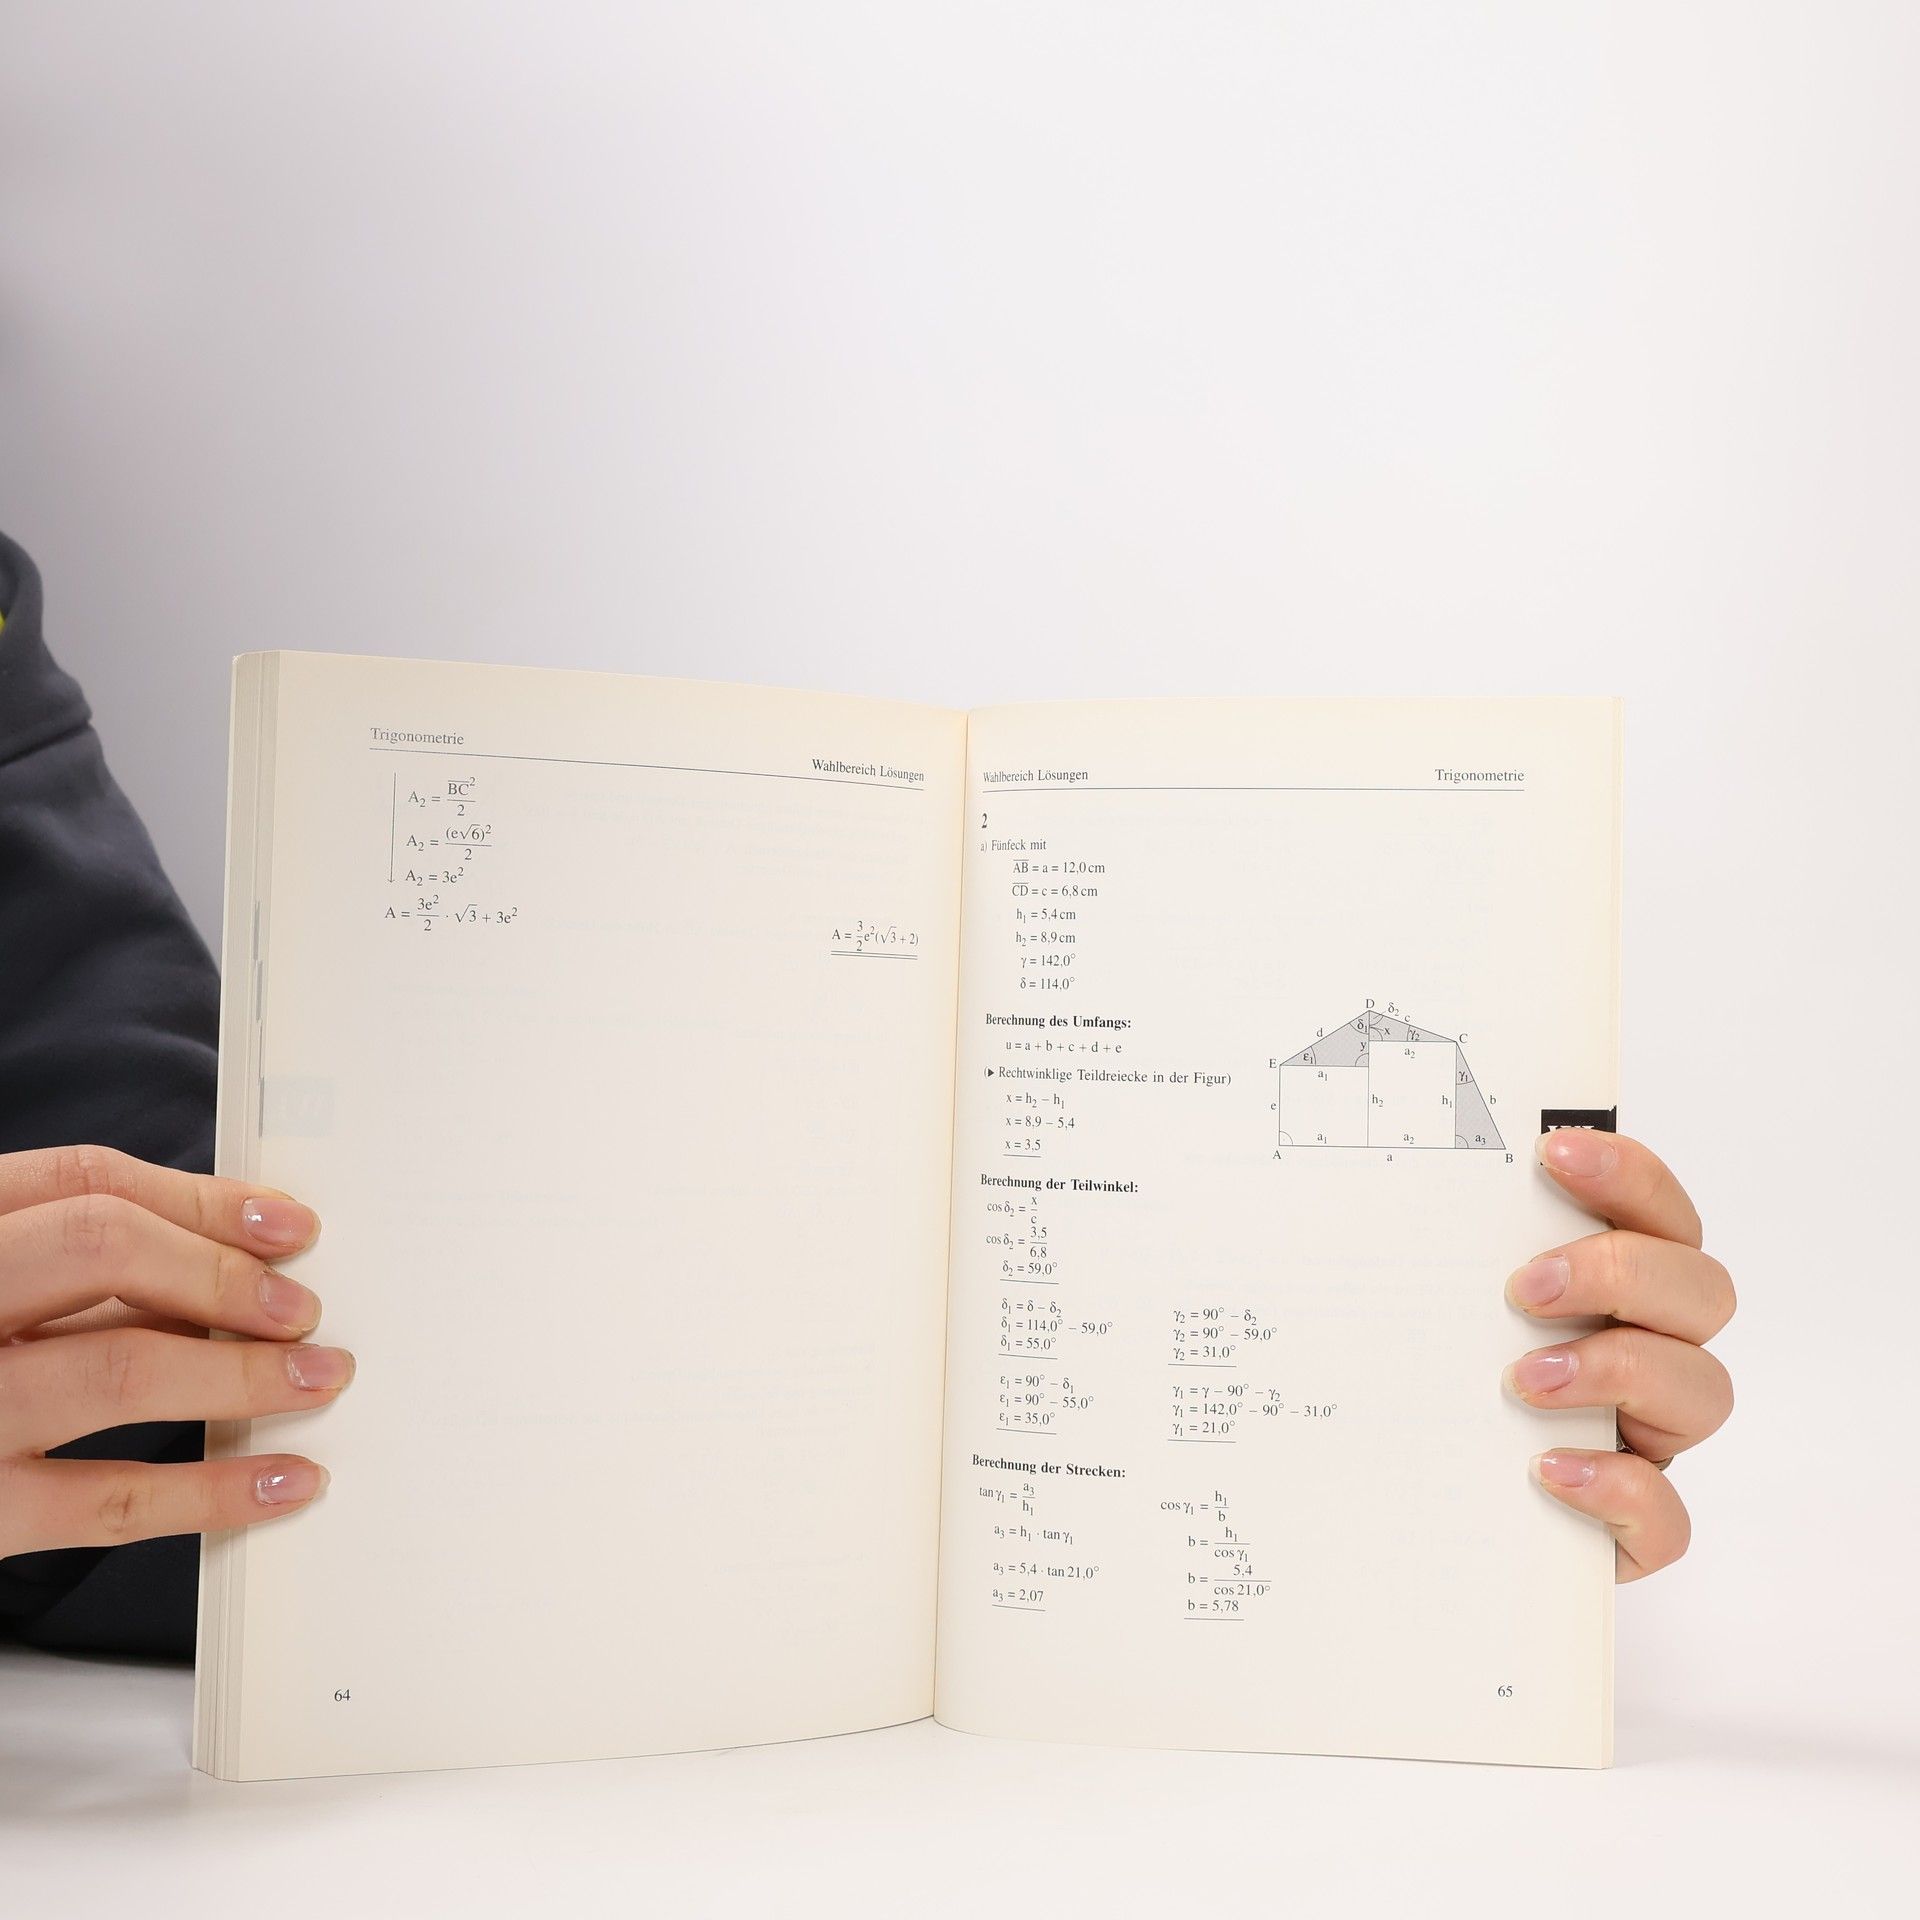 Trigonometrie
Wahlbereich Lösungen
A₂ = BC²/2
A₂ = (e√6)²/2
A₂ = 3e²
A = 3e²/2 · √3 + 3e²
A = 3/2 e²(√3 + 2)
64
Wahlbereich Lösungen
Trigonometrie
2
a) Fünfeck mit
AB = a = 12,0 cm
CD = c = 6,8 cm
h₁ = 5,4 cm
h₂ = 8,9 cm
γ = 142,0°
δ = 114,0°
Berechnung des Umfangs:
u = a + b + c + d + e
(▶ Rechtwinklige Teildreiecke in der Figur)
x = h₂ − h₁
x = 8,9 − 5,4
x = 3,5
D δ₂ c
d δ₁ x γ₂ C
E ε₁ y a₂
a₁ γ₁
e h₂ h₁ b
a₁ a₂ a₃
A a B
Berechnung der Teilwinkel:
cos δ₂ = x/c
cos δ₂ = 3,5/6,8
δ₂ = 59,0°
δ₁ = δ − δ₂
δ₁ = 114,0° − 59,0°
δ₁ = 55,0°
γ₂ = 90° − δ₂
γ₂ = 90° − 59,0°
γ₂ = 31,0°
ε₁ = 90° − δ₁
ε₁ = 90° − 55,0°
ε₁ = 35,0°
γ₁ = γ − 90° − γ₂
γ₁ = 142,0° − 90° − 31,0°
γ₁ = 21,0°
Berechnung der Strecken:
tan γ₁ = a₃/h₁
a₃ = h₁ · tan γ₁
a₃ = 5,4 · tan 21,0°
a₃ = 2,07
cos γ₁ = h₁/b
b = h₁/cos γ₁
b = 5,4/cos 21,0°
b = 5,78
65